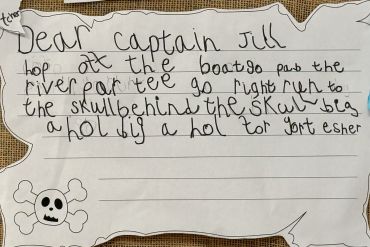 Dear captain Jill
hop off the boat go pas the
river par tee go right run to
the skull behind the skul big
a hol big a hol for yort esher